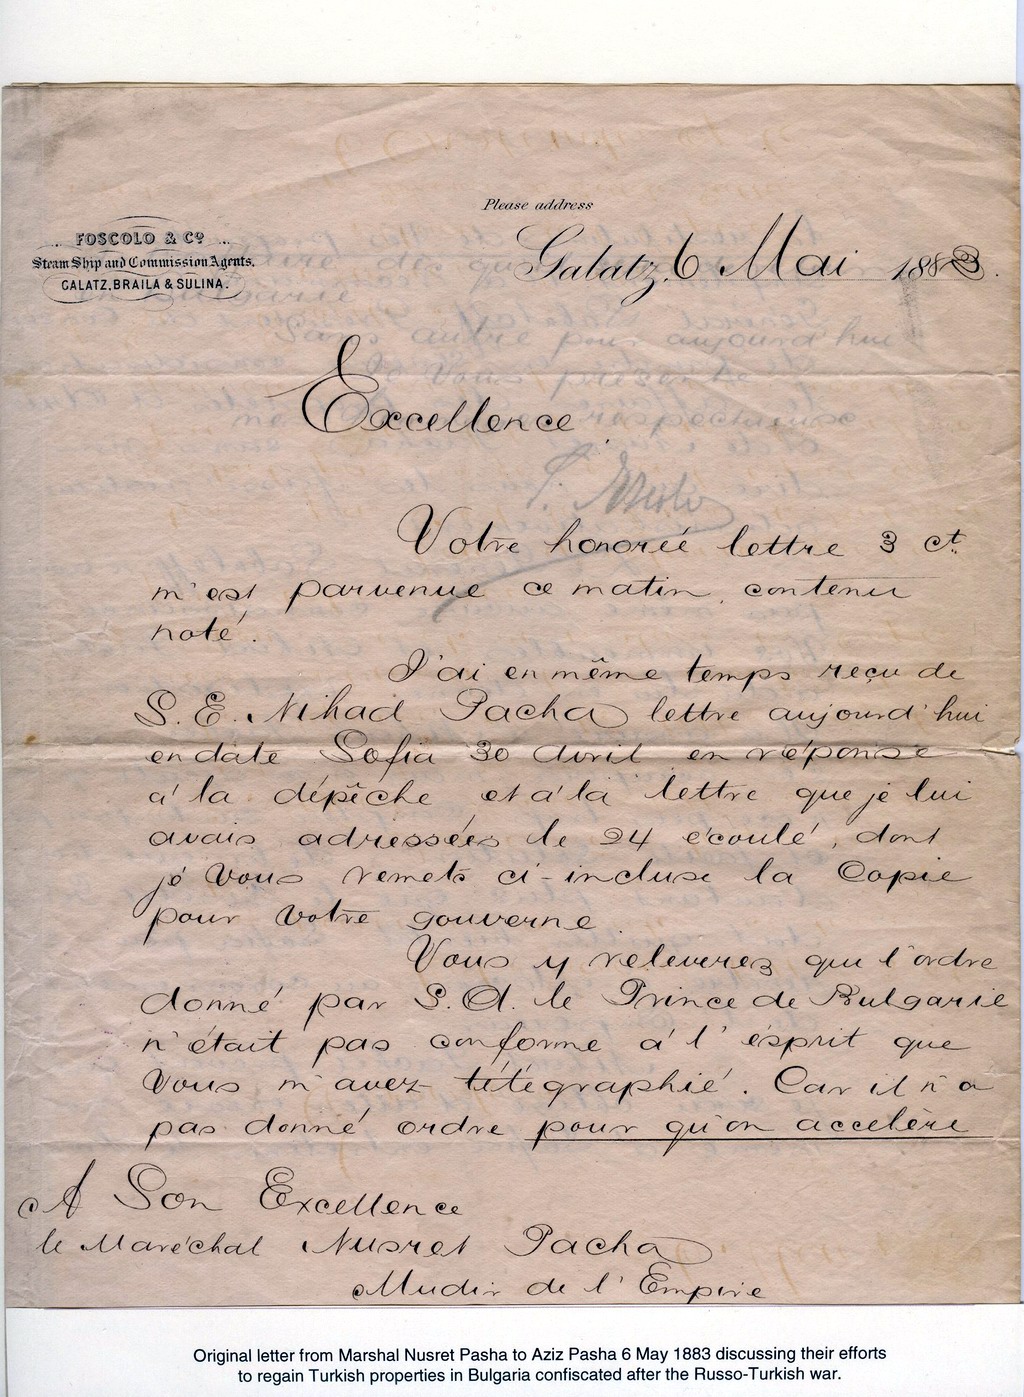 Please address
FOSCOLO & Co
Steam Ship and Commission Agents.
GALATZ, BRAILA & SULINA.
Galatz, 6 Mai 1883.
Excellence
Votre honorée lettre 3 ct.
m'est parvenue ce matin, contenu
noté.
J'ai en même temps reçu de
S. E. Nihad Pacha lettre aujourd'hui
en date Sofia 30 Avril en réponse
à la dépêche et à la lettre que je lui
avais adressées le 24 écoulé, dont
je vous remets ci-incluse la Copie
pour votre gouverne.
Vous y releverez que l'ordre
donné par S. A. le Prince de Bulgarie
n'était pas conforme à l'ésprit que
vous m'avez télégraphié. Car il n'a
pas donné ordre pour qu'on accelère
A Son Excellence
le Maréchal Nusret Pacha
Mudir de l'Empire
Original letter from Marshal Nusret Pasha to Aziz Pasha 6 May 1883 discussing their efforts
to regain Turkish properties in Bulgaria confiscated after the Russo-Turkish war.